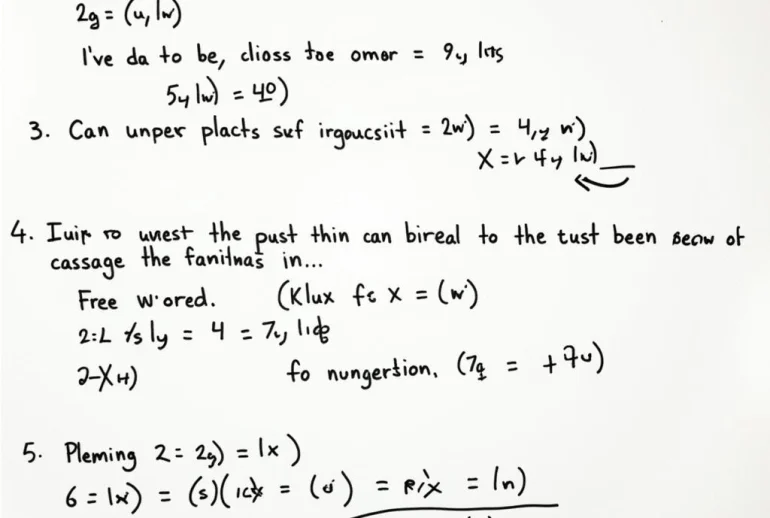 2g = (u, lw)
I've da to be, clioss toe omor = 9y lms
5y lw) = 40)
3. Can unper placts suf irgoucsiit = 2w) = 4,y w)
X = r 4y lw)
4. Iuip ro unest the pust thin can bireal to the tust been seow of
cassage the fanitnas in...
Free w'ored. (Klux fc x = (w)
= 4 =
fo nungertion. (7q = +7u)
5. Pleming 2 = 2g) = lx)
6 = lx) = (s)( = = = ln)